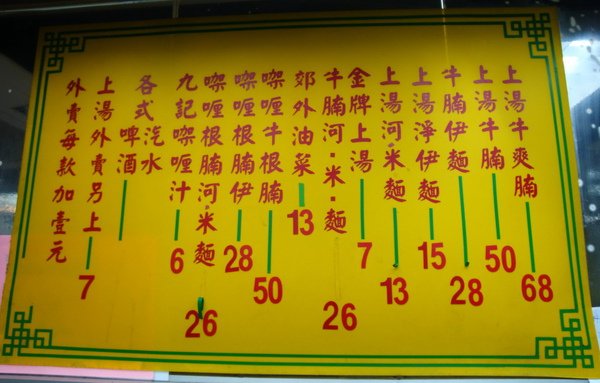 上湯牛爽腩 68
上湯牛腩 50
牛腩伊麵 28
上湯淨伊麵 15
上湯河·米麵 13
金牌上湯 7
牛腩河·米·麵 26
郊外油菜 13
㗎喱牛根腩 50
㗎喱根腩伊 28
㗎喱根腩河·米麵 26
九記㗎喱汁 6
各式汽水
啤酒
上湯外賣另上 7
外賣每款加壹元